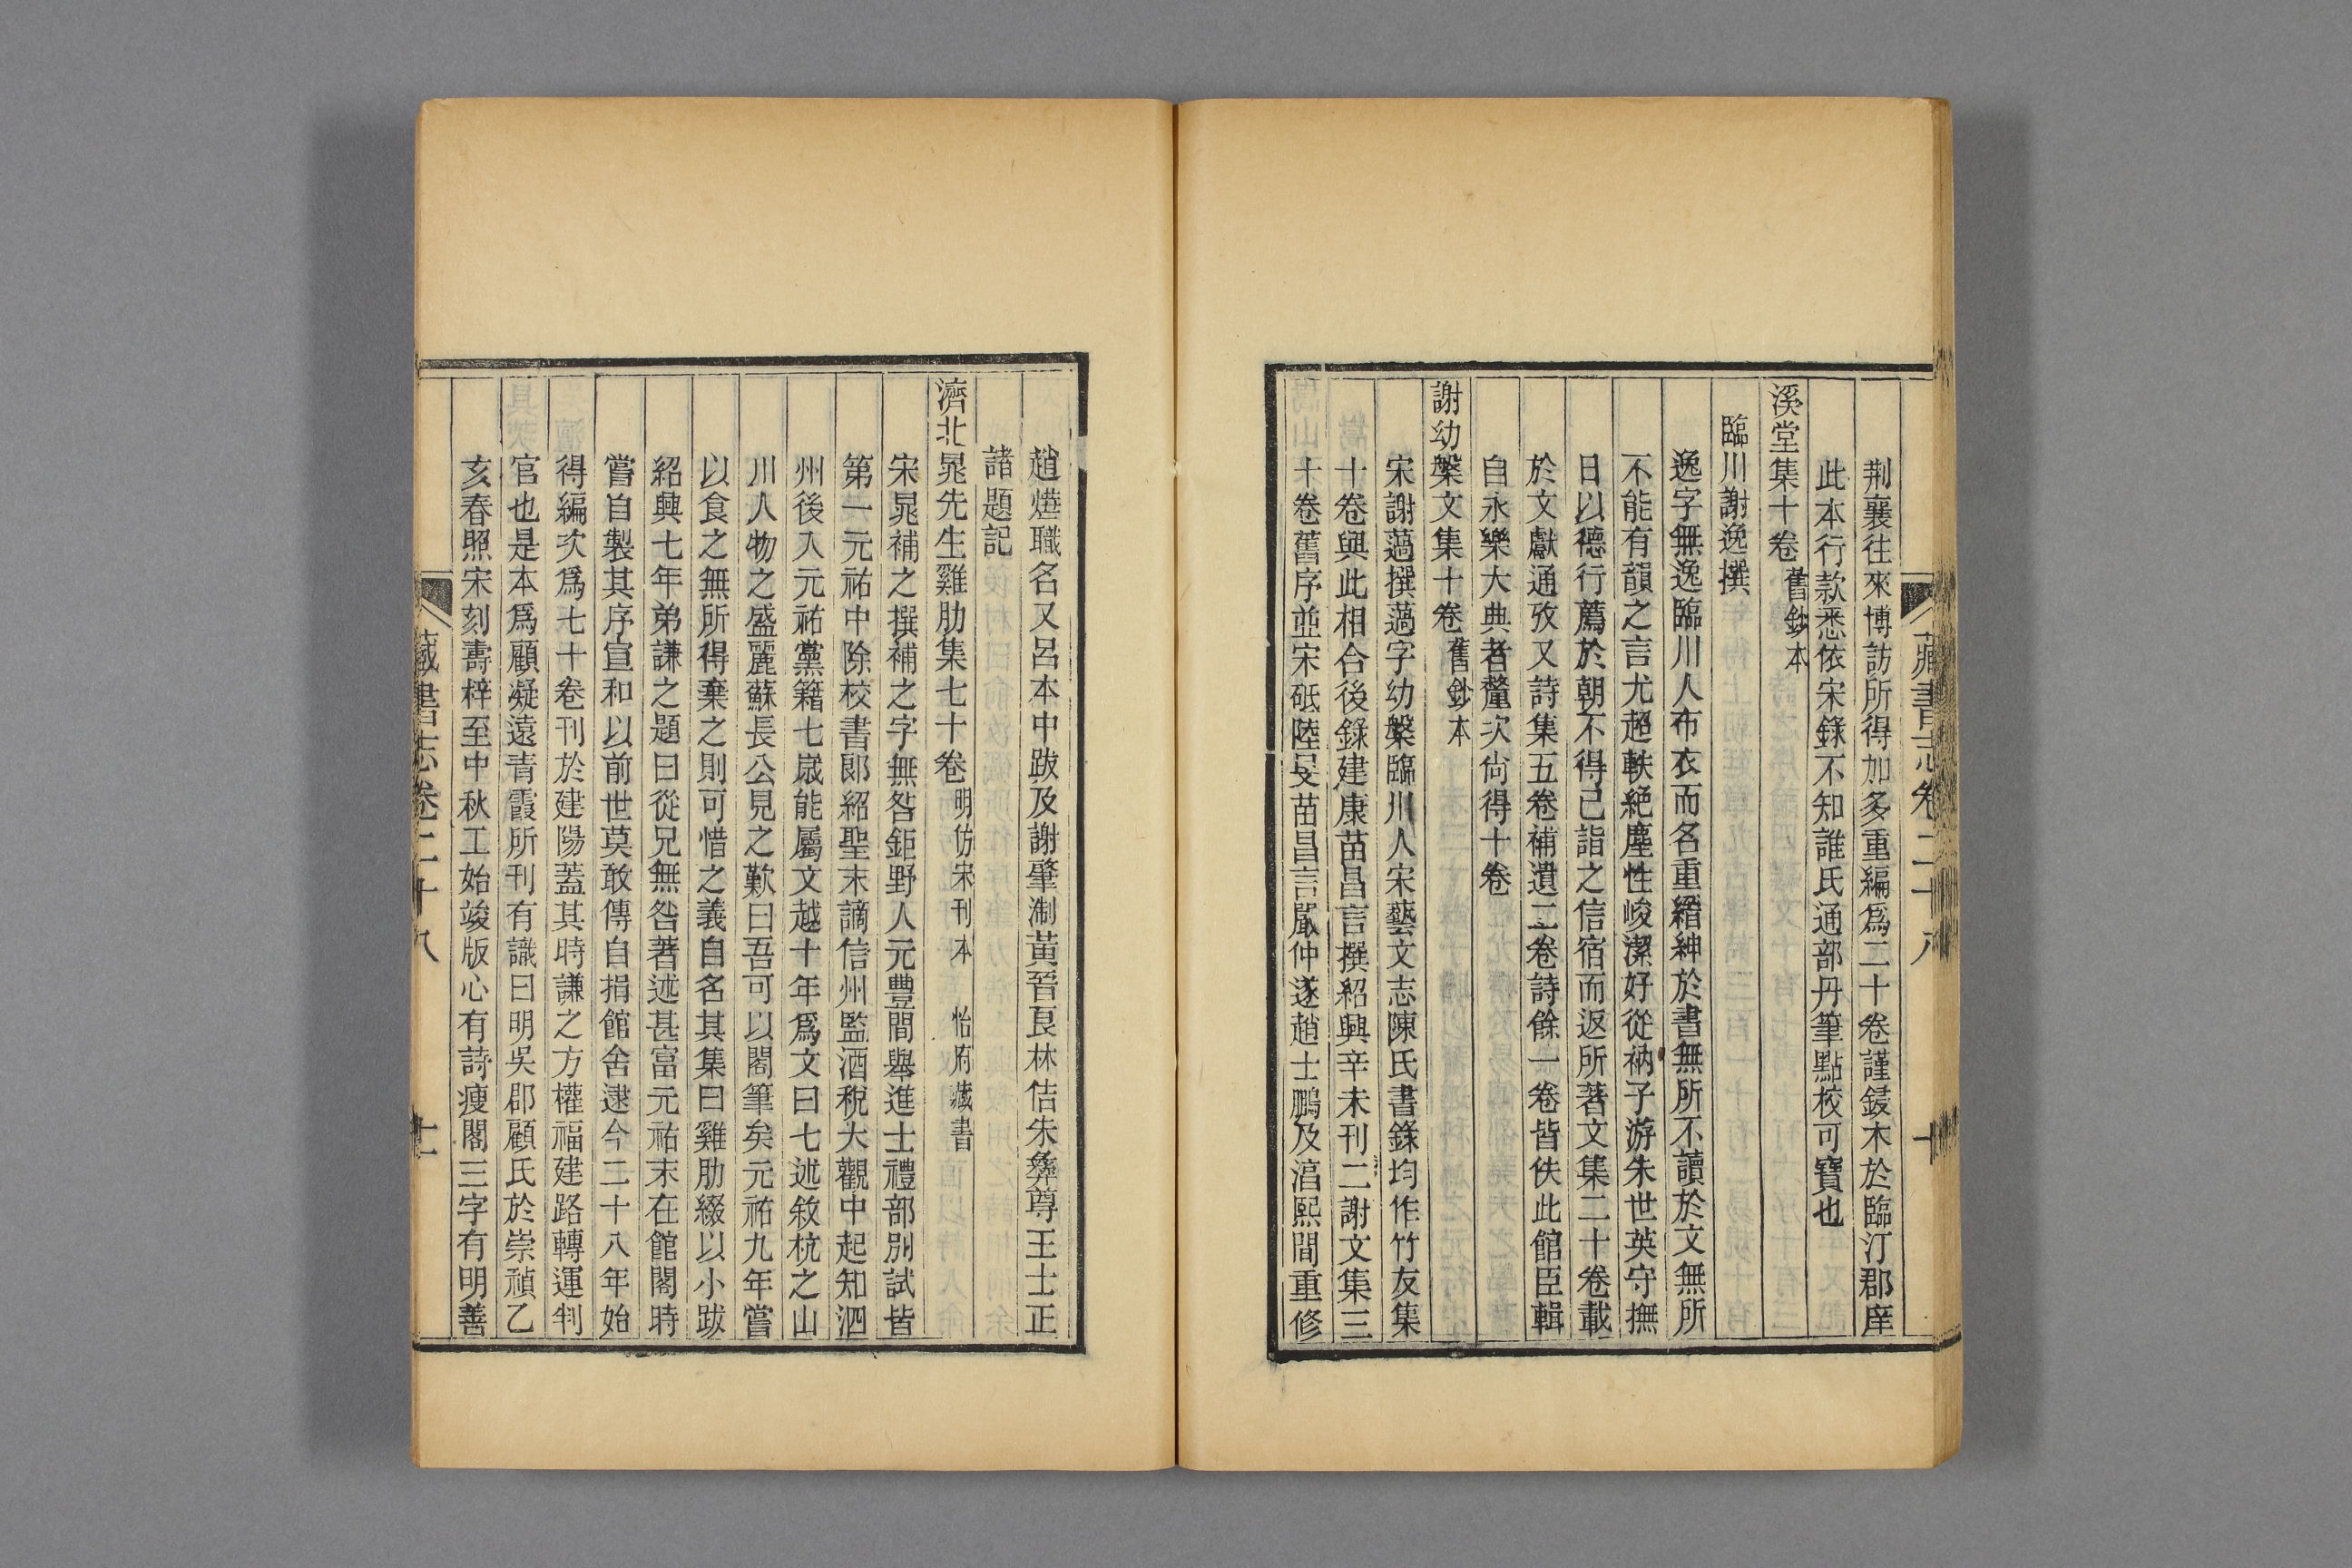 藏書志卷二十八 十
荆襄往來博訪所得加多重編爲二十卷謹鋟木於臨汀郡庠
此本行款悉依宋錄不知誰氏通部丹筆點校可寶也
溪堂集十卷 舊鈔本
臨川謝逸撰
逸字無逸臨川人布衣而名重縉紳於書無所不讀於文無所
不能有韻之言尤超軼絕塵性峻潔好從衲子游朱世英守撫
日以德行薦於朝不得已詣之信宿而返所著文集二十卷載
於文獻通攷又詩集五卷補遺二卷詩餘一卷皆佚此館臣輯
自永樂大典者釐次尙得十卷
謝幼槃文集十卷 舊鈔本
宋謝薖撰薖字幼槃臨川人宋藝文志陳氏書錄均作竹友集
十卷與此相合後錄建康苗昌言撰紹興辛未刊二謝文集三
十卷舊序並宋砥陸旻苗昌言嚴仲遂趙士鵬及淳熙間重修
趙煃職名又呂本中跋及謝肇淛黃晉良林佶朱彝尊王士正
諸題記
濟北晁先生雞肋集七十卷 明仿宋刊本 怡府藏書
宋晁補之撰補之字無咎鉅野人元豐間舉進士禮部別試皆
第一元祐中除校書郞紹聖末謫信州監酒稅大觀中起知泗
州後入元祐黨籍七歲能屬文越十年爲文曰七述敘杭之山
川人物之盛麗蘇長公見之歎曰吾可以閣筆矣元祐九年嘗
以食之無所得棄之則可惜之義自名其集曰雞肋綴以小跋
紹興七年弟謙之題曰從兄無咎著述甚富元祐末在館閣時
嘗自製其序宣和以前世莫敢傳自捐館舍逮今二十八年始
得編次爲七十卷刊於建陽蓋其時謙之方權福建路轉運判
官也是本爲顧凝遠青霞所刊有識曰明吳郡顧氏於崇禎乙
亥春照宋刻壽梓至中秋工始竣版心有詩瘦閣三字有明善
藏書志卷二十八 十一